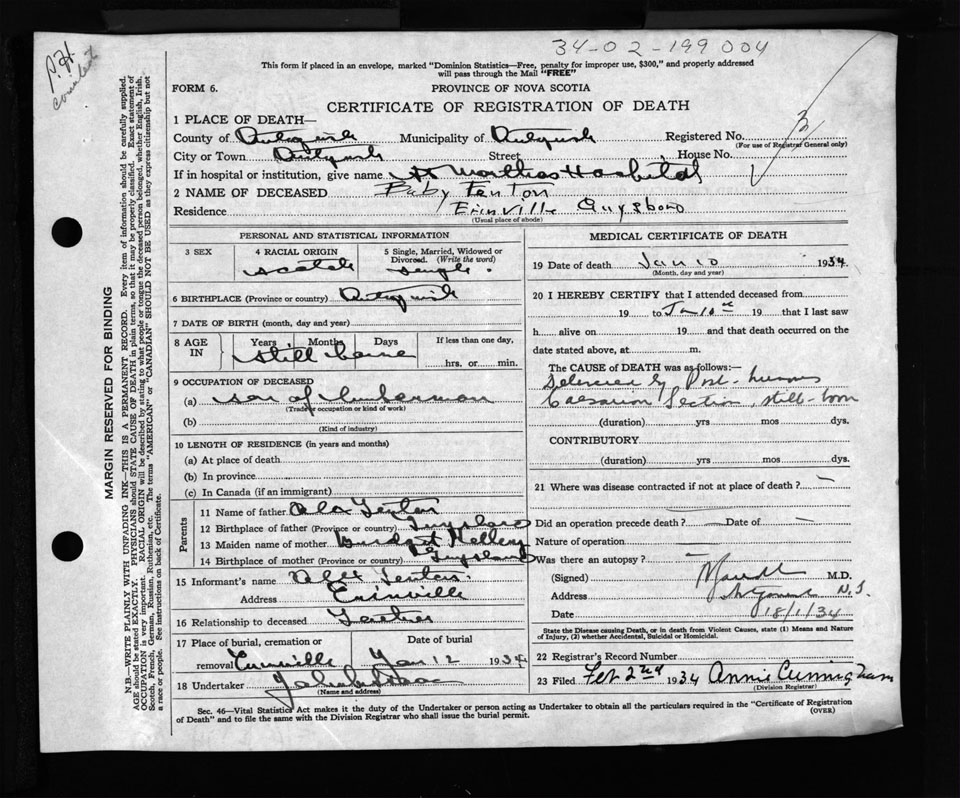 34-02-199 004
This form if placed in an envelope, marked "Dominion Statistics—Free, penalty for improper use, $300," and properly addressed
will pass through the Mail "FREE"
FORM 6.
PROVINCE OF NOVA SCOTIA
CERTIFICATE OF REGISTRATION OF DEATH
1 PLACE OF DEATH—
County of Antigonish Municipality of Antigonish Registered No. 3
(For use of Registrar General only)
City or Town Antigonish Street House No.
If in hospital or institution, give name St Marthas Hospital
2 NAME OF DECEASED Baby Fenton
Residence Erinville Guysboro
(Usual place of abode)
PERSONAL AND STATISTICAL INFORMATION
3 SEX
4 RACIAL ORIGIN
Scotch
5 Single, Married, Widowed or
Divorced. (Write the word)
Single.
6 BIRTHPLACE (Province or country) Antigonish
7 DATE OF BIRTH (month, day and year)
8 AGE IN
Years Months Days
If less than one day,
hrs. or min.
Still borne
9 OCCUPATION OF DECEASED
(a) son of lumberman
(Trade or occupation or kind of work)
(b)
(Kind of industry)
10 LENGTH OF RESIDENCE (in years and months)
(a) At place of death
(b) In province
(c) In Canada (if an immigrant)
Parents
11 Name of father Alex Fenton
12 Birthplace of father (Province or country) Guysboro
13 Maiden name of mother Bridget
14 Birthplace of mother (Province or country) Guysboro
15 Informant's name Alex Fenton
Address Erinville
16 Relationship to deceased Father
17 Place of burial, cremation or
removal Erinville
Date of burial
Jan 12 1934
18 Undertaker
(Name and address)
MEDICAL CERTIFICATE OF DEATH
19 Date of death Jan 10 1934
(Month, day and year)
20 I HEREBY CERTIFY that I attended deceased from
19 to Jan 10th 19 that I last saw
h alive on 19 and that death occurred on
date stated above, at m.
The CAUSE OF DEATH was as follows:—
Delivered by Post-
Caesarian Section, still-born
(duration) yrs mos dys.
CONTRIBUTORY
(duration) yrs mos dys.
21 Where was disease contracted if not at place of death? —
Did an operation precede death? — Date of —
Nature of operation —
Was there an autopsy? —
(Signed) M.D.
Address N.S.
Date 18/1/34
State the Disease causing Death, or in death from Violent Causes, state (1) Means and Nature
of Injury, (2) whether Accidental, Suicidal or Homicidal.
22 Registrar's Record Number
23 Filed Feb 2nd 1934 Annie Cunningham
(Division Registrar)
Sec. 46—Vital Statistics Act makes it the duty of the Undertaker or person acting as Undertaker to obtain all the particulars required in the "Certificate of Registration
of Death" and to file the same with the Division Registrar who shall issue the burial permit.
(OVER)
MARGIN RESERVED FOR BINDING
N.B.—WRITE PLAINLY WITH UNFADING INK—THIS IS A PERMANENT RECORD. Every item of information should be carefully supplied.
AGE should be stated EXACTLY. PHYSICIANS should STATE CAUSE OF DEATH in plain terms, so that it may be properly classified. Exact statement of
OCCUPATION is very important. RACIAL ORIGIN will be described by stating to what people or tongue the deceased person belonged, whether English, Irish,
Scotch, French, German, Russian, Ruthenian, etc. The terms "AMERICAN" or "CANADIAN" SHOULD NOT BE USED as they express citizenship but not
a race or people. See instructions on back of Certificate.